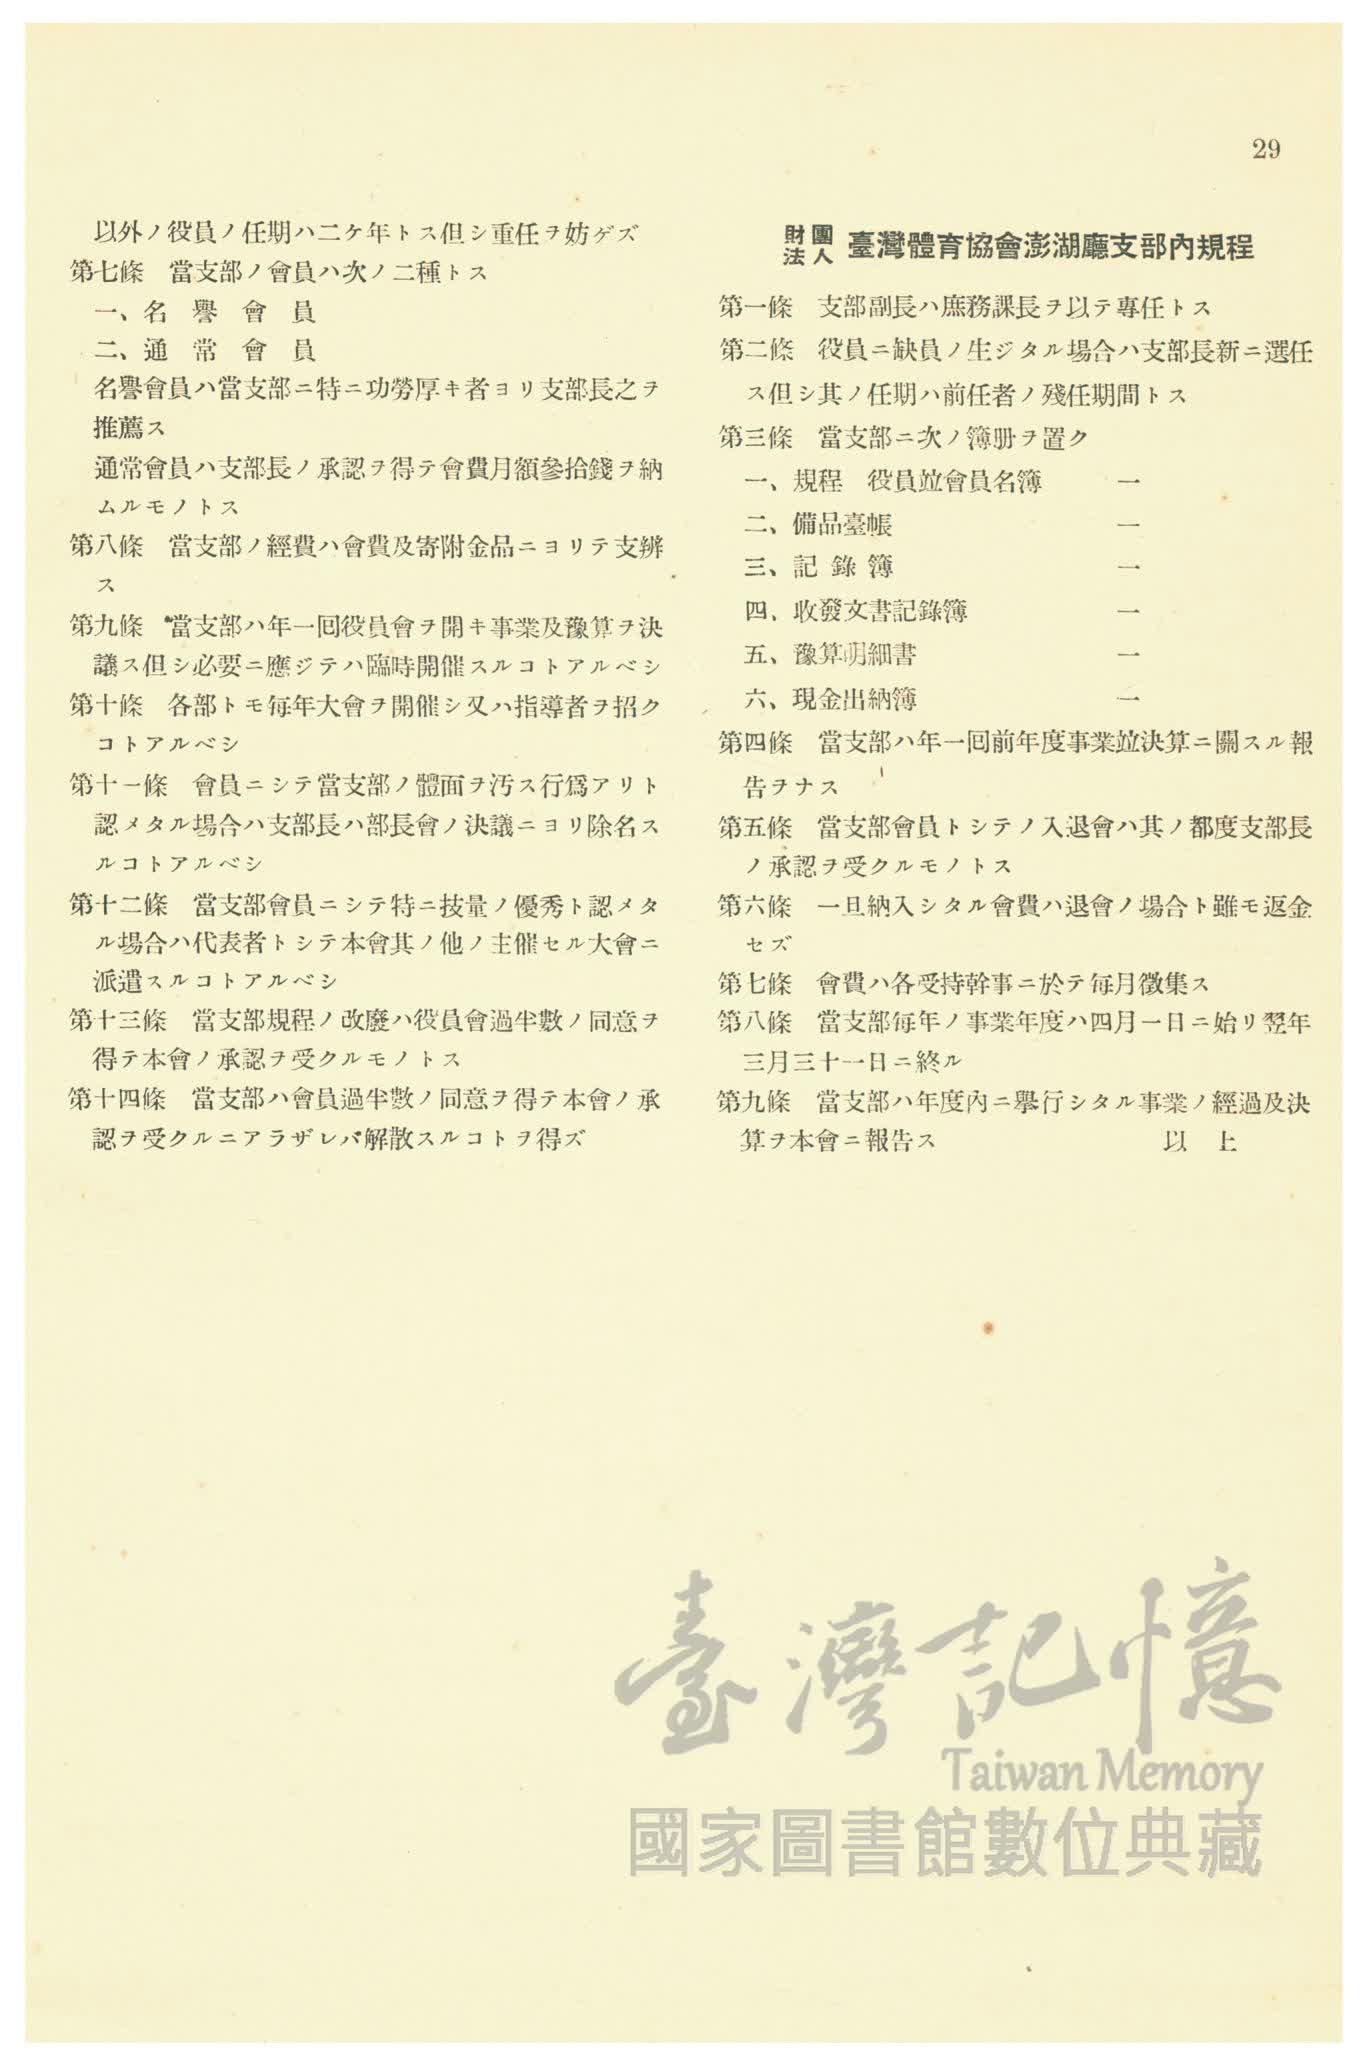 29
以外ノ役員ノ任期ハ二ケ年トス但シ重任ヲ妨ゲズ
第七條　當支部ノ會員ハ次ノ二種トス
一、名　譽　會　員
二、通　常　會　員
名譽會員ハ當支部ニ特ニ功勞厚キ者ヨリ支部長之ヲ
推薦ス
通常會員ハ支部長ノ承認ヲ得テ會費月額參拾錢ヲ納
ムルモノトス
第八條　當支部ノ經費ハ會費及寄附金品ニヨリテ支辨
ス
第九條　當支部ハ年一回役員會ヲ開キ事業及豫算ヲ決
議ス但シ必要ニ應ジテハ臨時開催スルコトアルベシ
第十條　各部トモ每年大會ヲ開催シ又ハ指導者ヲ招ク
コトアルベシ
第十一條　會員ニシテ當支部ノ體面ヲ汚ス行爲アリト
認メタル場合ハ支部長ハ部長會ノ決議ニヨリ除名ス
ルコトアルベシ
第十二條　當支部會員ニシテ特ニ技量ノ優秀ト認メタ
ル場合ハ代表者トシテ本會其ノ他ノ主催セル大會ニ
派遣スルコトアルベシ
第十三條　當支部規程ノ改廢ハ役員會過半數ノ同意ヲ
得テ本會ノ承認ヲ受クルモノトス
第十四條　當支部ハ會員過半數ノ同意ヲ得テ本會ノ承
認ヲ受クルニアラザレバ解散スルコトヲ得ズ
財團法人 臺灣體育協會澎湖廳支部內規程
第一條　支部副長ハ庶務課長ヲ以テ專任トス
第二條　役員ニ缺員ノ生ジタル場合ハ支部長新ニ選任
ス但シ其ノ任期ハ前任者ノ殘任期間トス
第三條　當支部ニ次ノ簿册ヲ置ク
一、規程　役員竝會員名簿　一
二、備品臺帳　一
三、記錄簿　一
四、收發文書記錄簿　一
五、豫算明細書　一
六、現金出納簿　一
第四條　當支部ハ年一回前年度事業竝決算ニ關スル報
告ヲナス
第五條　當支部會員トシテノ入退會ハ其ノ都度支部長
ノ承認ヲ受クルモノトス
第六條　一旦納入シタル會費ハ退會ノ場合ト雖モ返金
セズ
第七條　會費ハ各受持幹事ニ於テ每月徵集ス
第八條　當支部每年ノ事業年度ハ四月一日ニ始リ翌年
三月三十一日ニ終ル
第九條　當支部ハ年度內ニ擧行シタル事業ノ經過及決
算ヲ本會ニ報告ス　以　上
臺灣記憶
Taiwan Memory
國家圖書館數位典藏